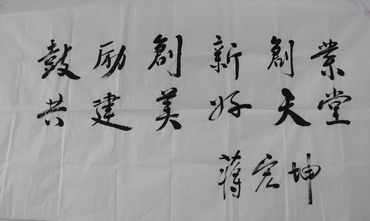 鼓励創新創業
共建美好天堂
蒋宏坤